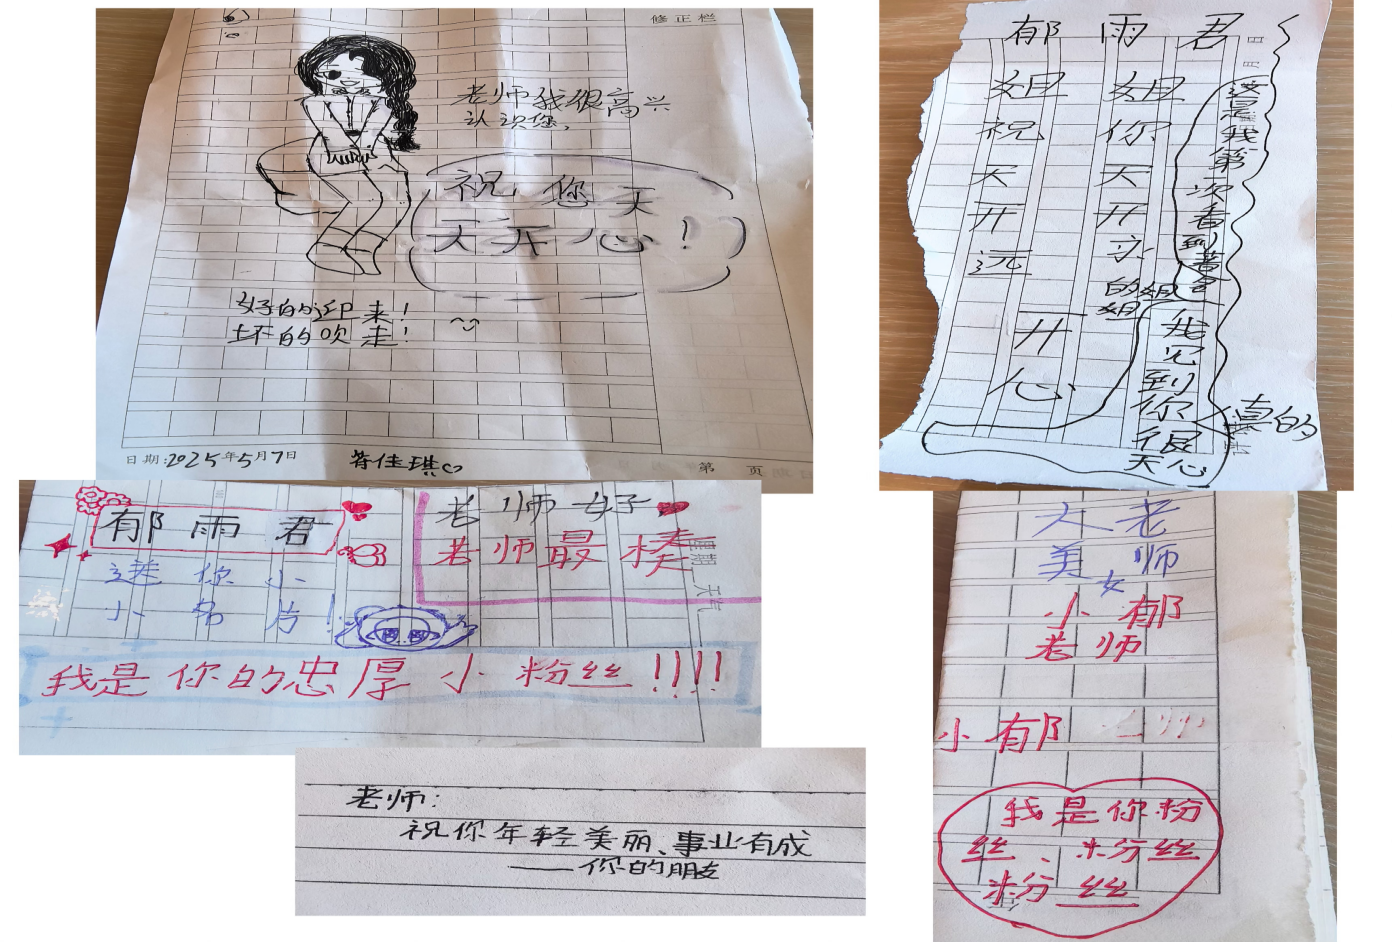 修正栏
老师我很高兴
认识您,
祝您天
天开心!
好的迎来!
坏的吹走!
日期:2025年5月7日
符佳琪
第 页
郁雨君
姐你天开心的姐姐
姐祝天开远
开心
这是我第一次看到著名
我见到你很天心
真的
郁雨君
送你小
小名片!
老师好
老师最棒
星期
天气
我是你的忠厚小粉丝!!!!
老师:
祝你年轻美丽、事业有成
——你的朋友
大老
美师
女
小郁
老师
小郁
我是你粉
丝、粉丝
粉丝